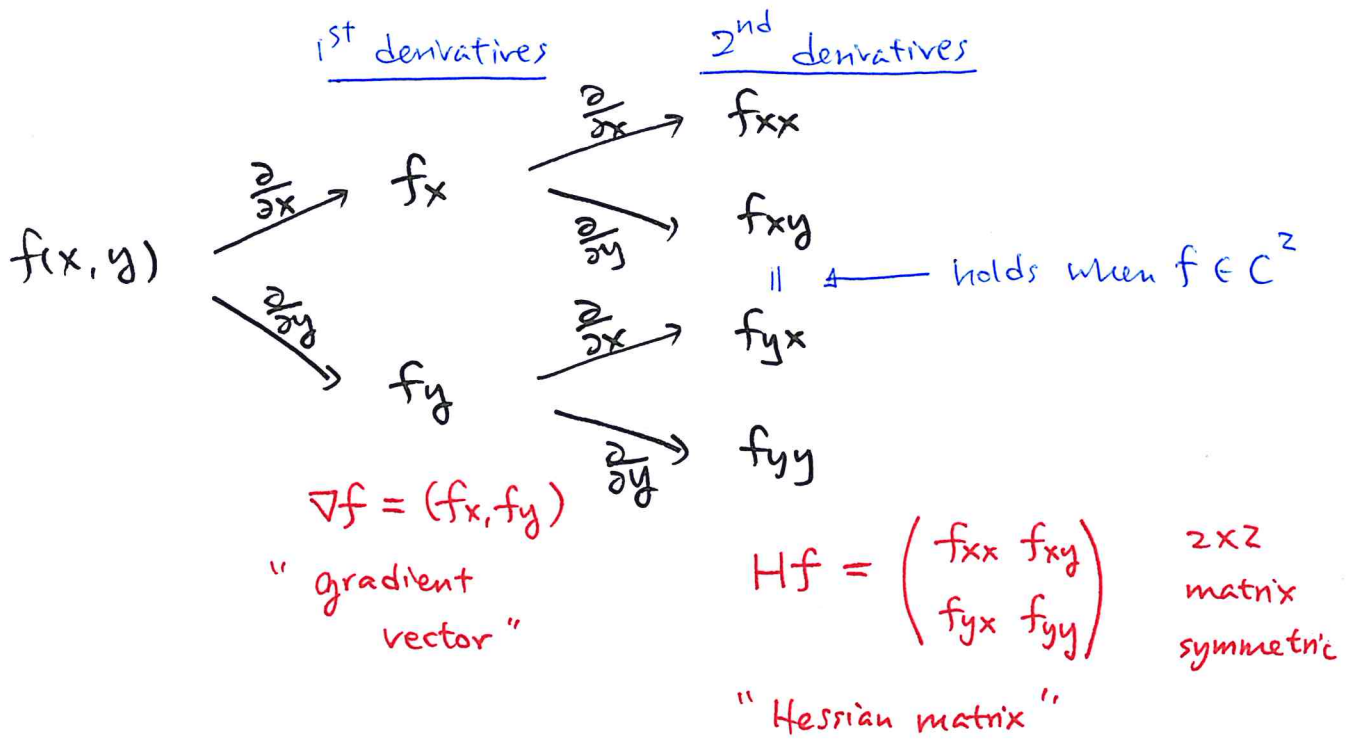 1st derivatives
2nd derivatives
∂/∂x
fxx
∂/∂x
fx
∂/∂y
fxy
f(x, y)
|| ← holds when f ∈ C²
∂/∂y
∂/∂x
fyx
fy
∂/∂y
fyy
∇f = (fx, fy)
" gradient
vector "
Hf = ( fxx fxy
fyx fyy )
2x2
matrix
symmetric
" Hessian matrix "